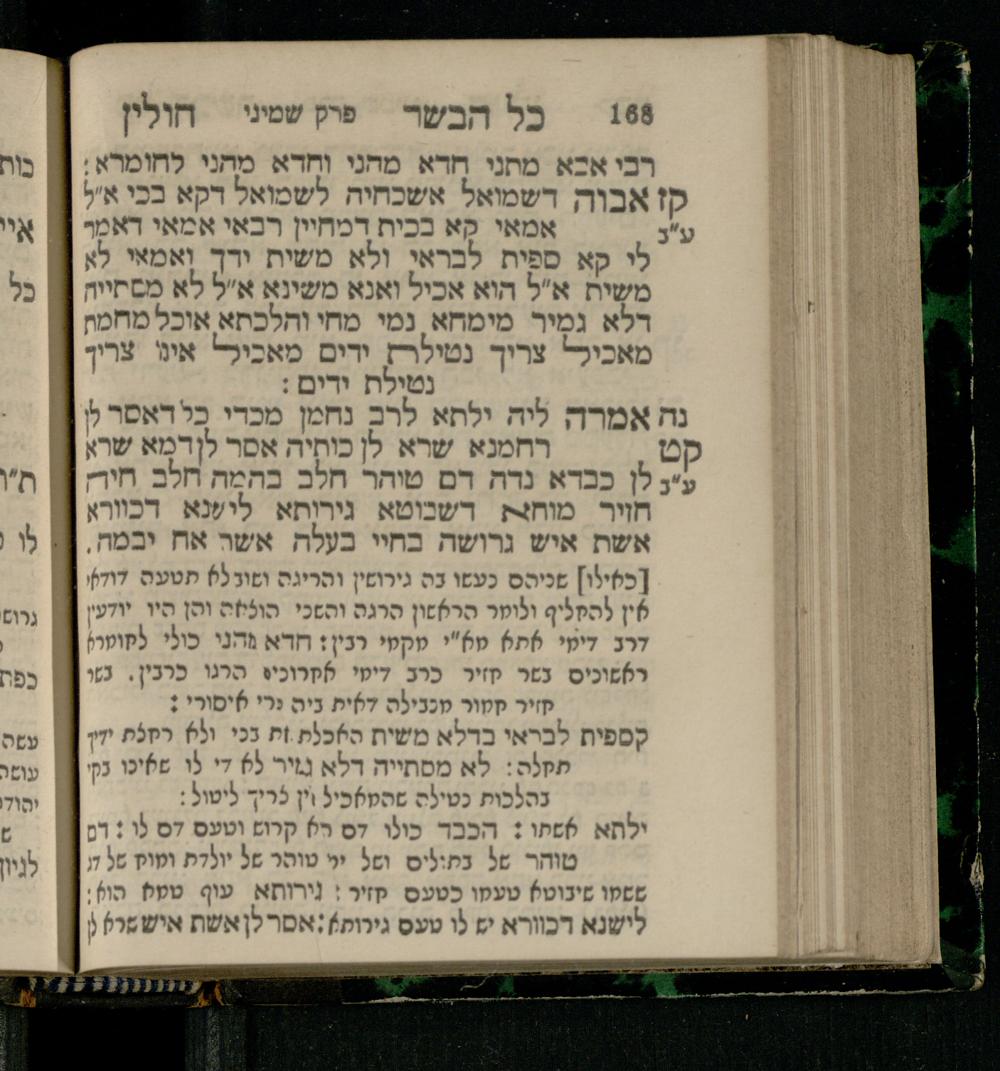 168 כל הבשר פרק שמיני חולין
רבי אבא מתני חדא מהני וחדא מהני לחומרא:
קז אבוה דשמואל אשכחיה לשמואל דקא בכי א"ל
ע"ב אמאי קא בכית דמחיין רבאי אמאי דאמר
לי קא ספית לבראי ולא משית ידך ואמאי לא
משית א"ל הוא אכיל ואנא משינא א"ל לא מסתייה
דלא גמיר מימחא נמי מחי והלכתא אוכל מחמת
מאכיל צריך נטילת ידים מאכיל אינו צריך
נטילת ידים:
נה אמרה ליה ילתא לרב נחמן מכדי כל דאסר לן
קט רחמנא שרא לן כותיה אסר לן דמא שרא
ע"ב לן כבדא נדה דם טוהר חלב בהמה חלב חיה
חזיר מוחא דשבוטא גירותא לישנא דכוורא
אשת איש גרושה בחיי בעלה אשר אח יבמה.
[כאילו] שניהם נעשו בה גירושין והריגה ושוב לא תטעה דודאי
אין להחליף ולומר הראשון הרגה והשני הוציאה והן היו יודעין
דרב דימי אתא מא"י מקמי רבין: חדא מהני כולי לחומרא
ראשונים בשר חזיר כרב דימי אחרונים הרגו כרבין. בשר
חזיר חמור מנבילה דאית ביה תרי איסורי:
קספית לבראי בדלא משית האכלת את בני ולא רחצת ידיך
תחלה: לא מסתייה דלא גמיר לא די לו שאינו בקי
בהלכות נטילה שהמאכיל אין צריך ליטול:
ילתא אשתו: הכבד כולו דם הא קרוש וטעם דם לו: דם
טוהר של בתולים ושל ימי טוהר של יולדת ומוח של דג
ששמו שיבוטא טעמו כטעם חזיר: גירותא עוף טמא הוא:
לישנא דכוורא יש לו טעם גירותא: אסר לן אשת איש שרא לן